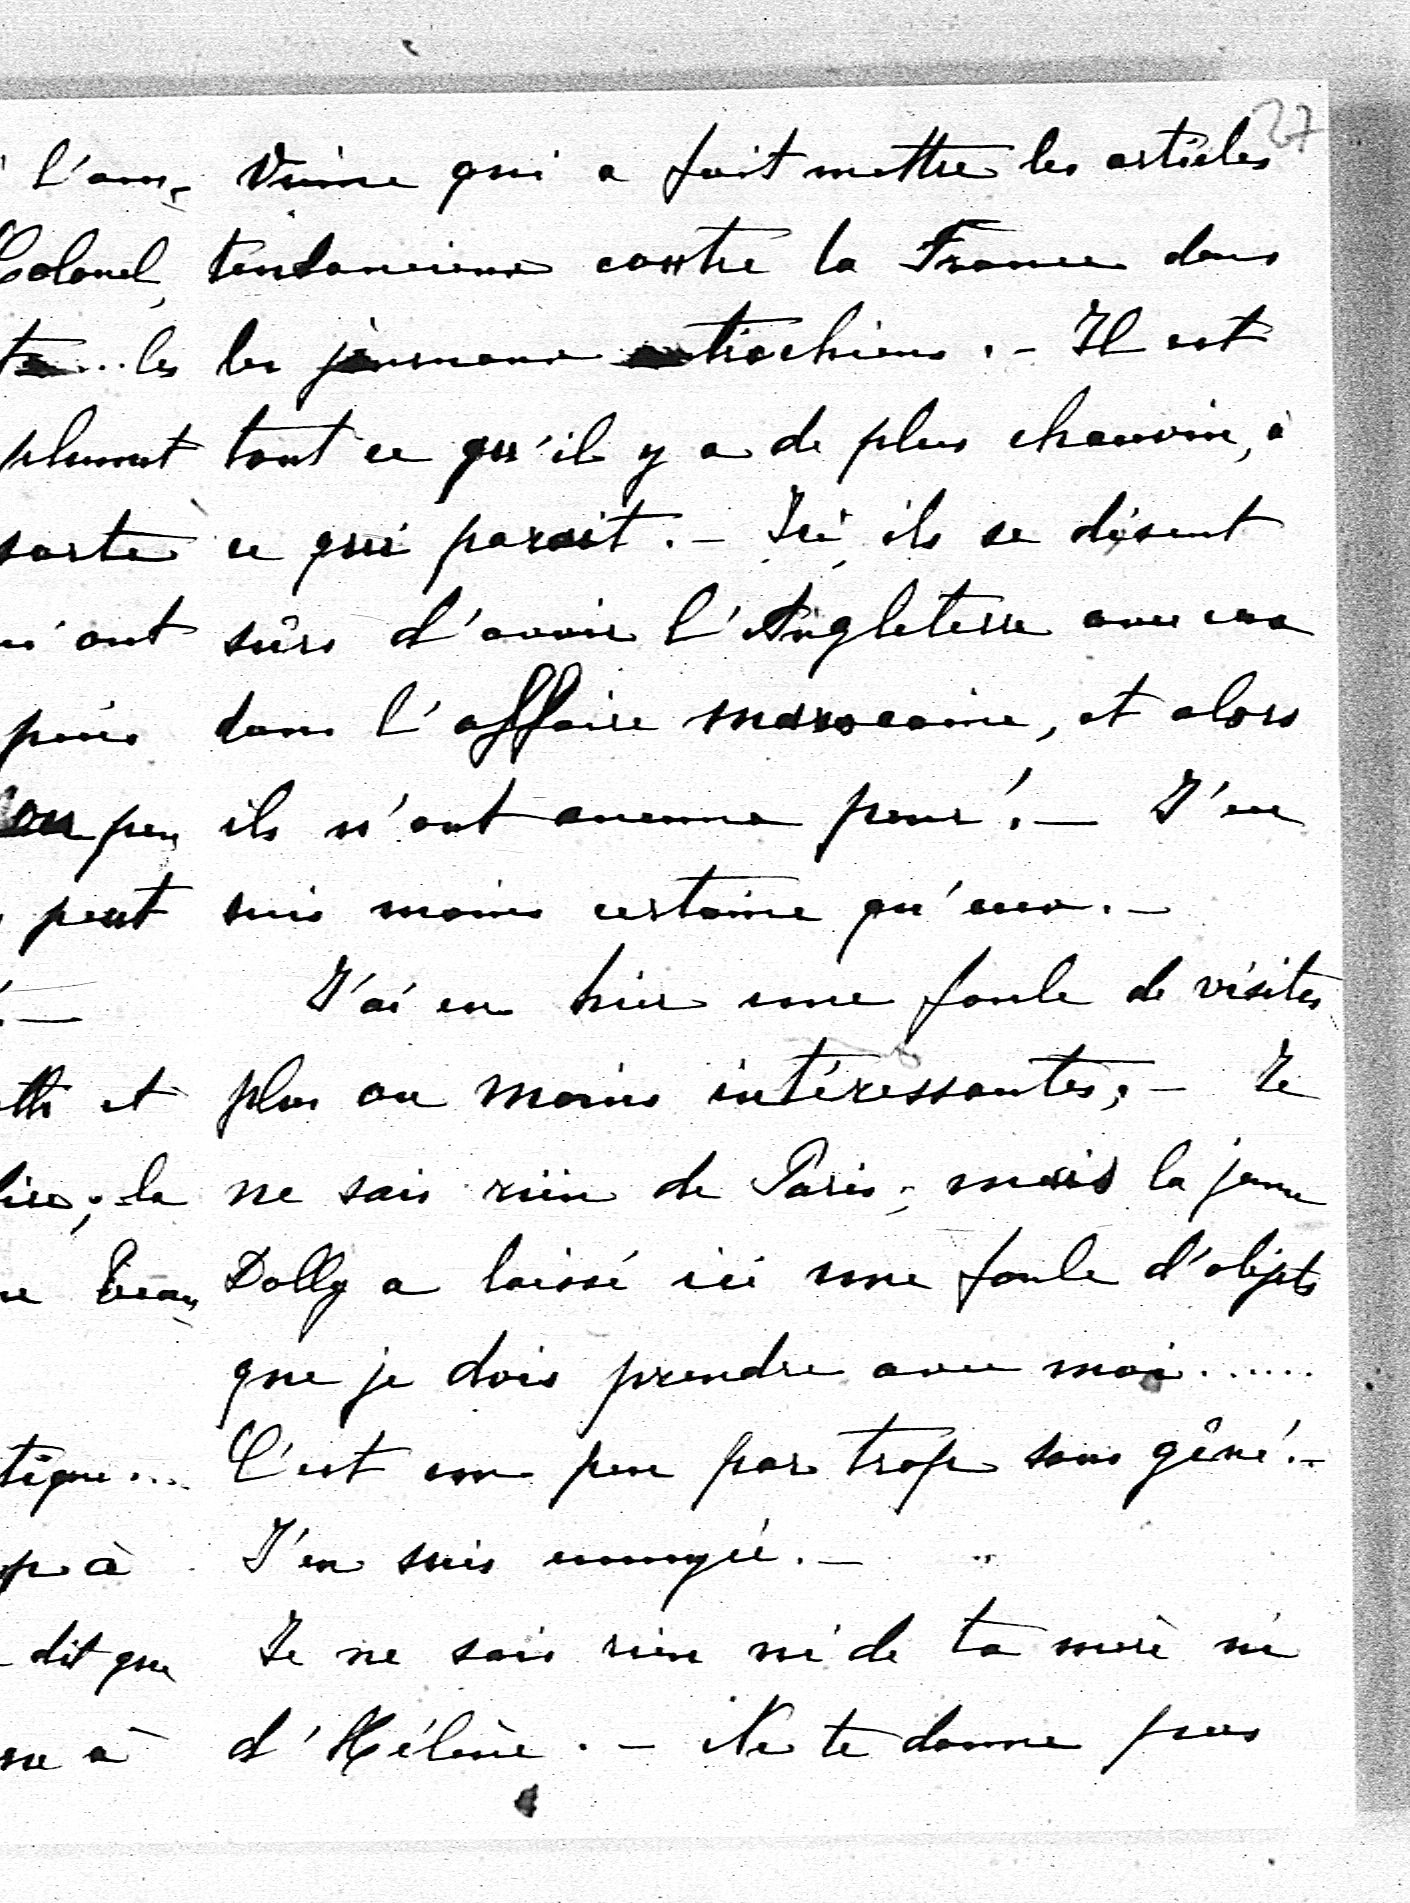 27
qui a fait mettre les articles
tendancieux contre la France dans
les journaux autrichiens. - Il est
tout ce qu'il y a de plus chauvin, à
ce qui parait. - Ici, ils se disent
sûrs d'avoir l'Angleterre avec eux
dans l'affaire marocaine, et alors
ils n'ont aucune peur! - J'en
suis moins certaine qu'eux. -
J'ai eu hier une foule de visites
plus ou moins intéressantes; - Je
ne sais rien de Paris; mais la jeune
Dolly a laissé ici une foule d'objets
que je dois prendre avec moi......
C'est un peu par trop sans gêne! -
J'en suis ennuyée. -
Je ne sais rien ni de ta mère ni
d'Hélène. - Ne te donne pas
Colonel,
... les
plument
sorte
n'ont
peu
peut
! -
et
; la
Beau
...
à
dit que
à